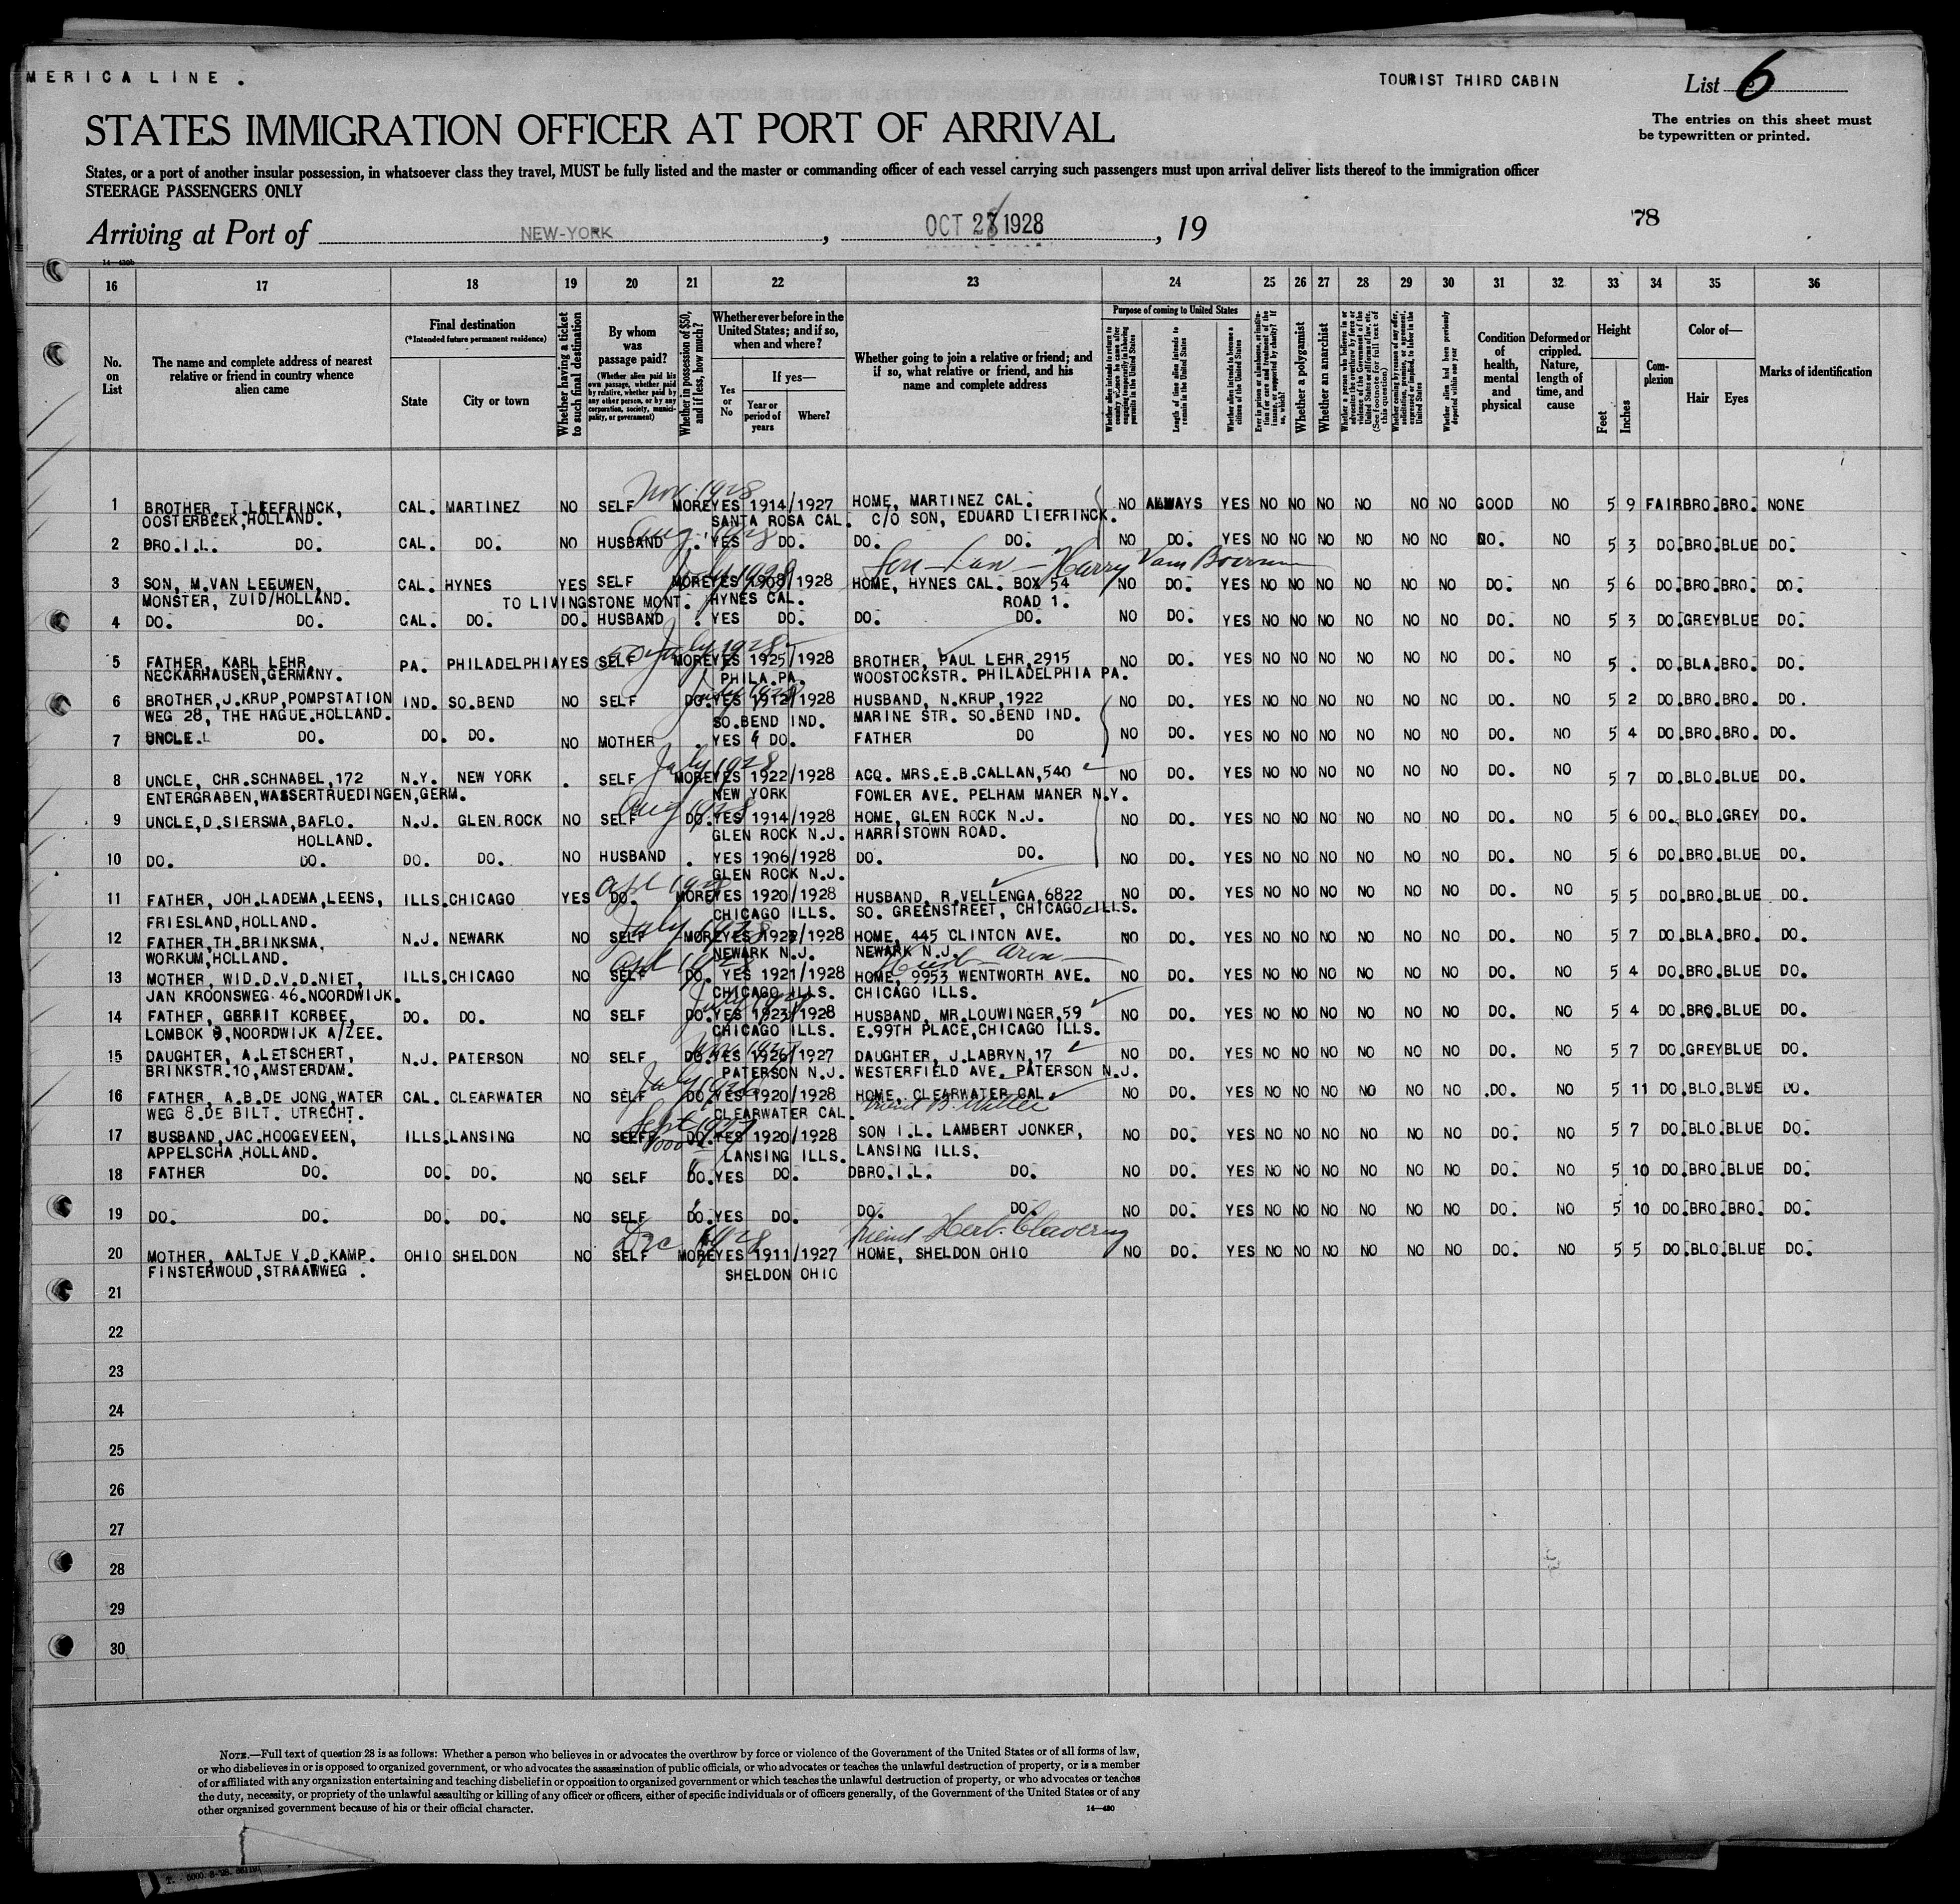 MERICA LINE .
TOURIST THIRD CABIN
List 6
The entries on this sheet must
be typewritten or printed.
STATES IMMIGRATION OFFICER AT PORT OF ARRIVAL
States, or a port of another insular possession, in whatsoever class they travel, MUST be fully listed and the master or commanding officer of each vessel carrying such passengers must upon arrival deliver lists thereof to the immigration officer
STEERAGE PASSENGERS ONLY
Arriving at Port of NEW-YORK, OCT 1928, 19
78
16 17 18 19 20 21 22 23 24 25 26 27 28 29 30 31 32 33 34 35 36
No. on List
The name and complete address of nearest relative or friend in country whence alien came
Final destination
(*Intended future permanent residence)
State
City or town
Whether having a ticket to such final destination
By whom was passage paid?
(Whether alien paid his own passage, whether paid by relative, whether paid by any other person, or by any corporation, society, municipality, or government)
Whether in possession of $50, and if less, how much?
Whether ever before in the United States; and if so, when and where?
Yes or No
If yes—
Year or period of years
Where?
Whether going to join a relative or friend; and if so, what relative or friend, and his name and complete address
Purpose of coming to United States
Length of time alien intends to remain in the United States
Whether alien intends to become a citizen of the United States
Whether a polygamist
Whether an anarchist
Condition of health, mental and physical
Deformed or crippled. Nature, length of time, and cause
Height
Feet
Inches
Complexion
Color of—
Hair
Eyes
Marks of identification
1 BROTHER, T.LIEFRINCK, CAL. MARTINEZ NO SELF MORE YES 1914/1927 HOME, MARTINEZ CAL. NO ALWAYS YES NO NO NO NO NO NO GOOD NO 5 9 FAIR BRO. BRO. NONE
OOSTERBEEK,HOLLAND. SANTA ROSA CAL. C/O SON, EDUARD LIEFRINCK.
2 BRO.I.L. DO. CAL. DO. NO HUSBAND . YES DO. DO. DO. NO DO. YES NO NO NO NO NO NO DO. NO 5 3 DO. BRO. BLUE DO.
3 SON, M.VAN LEEUWEN, CAL. HYNES YES SELF MORE YES 1908/1928 HOME, HYNES CAL. BOX 54 NO DO. YES NO NO NO NO NO NO DO. NO 5 6 DO. BRO. BRO. DO.
MONSTER, ZUID/HOLLAND. TO LIVINGSTONE MONT. HYNES CAL. ROAD 1.
4 DO. DO. CAL. DO. DO. HUSBAND . YES DO. DO. DO. NO DO. YES NO NO NO NO NO NO DO. NO 5 3 DO. GREY BLUE DO.
5 FATHER, KARL LEHR, PA. PHILADELPHIA YES SELF MORE YES 1925/1928 BROTHER, PAUL LEHR, 2915 NO DO. YES NO NO NO NO NO NO DO. NO 5 . DO. BLA. BRO. DO.
NECKARHAUSEN,GERMANY. PHILA.PA. WOOSTOCKSTR. PHILADELPHIA PA.
6 BROTHER,J.KRUP,POMPSTATION IND. SO.BEND NO SELF DO. YES 1912/1928 HUSBAND, N.KRUP,1922 NO DO. YES NO NO NO NO NO NO DO. NO 5 2 DO. BRO. BRO. DO.
WEG 28, THE HAGUE.HOLLAND. SO.BEND IND. MARINE STR. SO.BEND IND.
7 UNCLE. DO. DO. DO. NO MOTHER . YES DO. FATHER DO NO DO. YES NO NO NO NO NO NO DO. NO 5 4 DO. BRO. BRO. DO.
8 UNCLE, CHR.SCHNABEL,172 N.Y. NEW YORK . SELF MORE YES 1922/1928 ACQ. MRS.E.B.CALLAN,540 NO DO. YES NO NO NO NO NO NO DO. NO 5 7 DO. BLO. BLUE DO.
ENTERGRABEN,WASSERTRUEDINGEN,GERM. NEW YORK FOWLER AVE. PELHAM MANER N.Y.
9 UNCLE,D.SIERSMA,BAFLO. N.J. GLEN.ROCK NO SELF DO. YES 1914/1928 HOME, GLEN ROCK N.J. NO DO. YES NO NO NO NO NO NO DO. NO 5 6 DO. BLO. GREY DO.
HOLLAND. GLEN ROCK N.J. HARRISTOWN ROAD.
10 DO. DO. DO. DO. NO HUSBAND . YES 1906/1928 DO. DO. NO DO. YES NO NO NO NO NO NO DO. NO 5 6 DO. BRO. BLUE DO.
GLEN ROCK N.J.
11 FATHER, JOH.LADEMA,LEENS, ILLS. CHICAGO YES DO. MORE YES 1920/1928 HUSBAND, R.VELLENGA,6822 NO DO. YES NO NO NO NO NO NO DO. NO 5 5 DO. BRO. BLUE DO.
FRIESLAND,HOLLAND. CHICAGO ILLS. SO. GREENSTREET, CHICAGO ILLS.
12 FATHER,TH.BRINKSMA, N.J. NEWARK NO SELF MORE YES /1928 HOME, 445 CLINTON AVE. NO DO. YES NO NO NO NO NO NO DO. NO 5 7 DO. BLA. BRO. DO.
WORKUM,HOLLAND. NEWARK N.J. NEWARK N.J.
13 MOTHER, WID.D.V.D.NIET, ILLS. CHICAGO NO SELF DO. YES 1921/1928 HOME, 9953 WENTWORTH AVE. NO DO. YES NO NO NO NO NO NO DO. NO 5 4 DO. BRO. BLUE DO.
JAN KROONSWEG 46.NOORDWIJK. CHICAGO ILLS. CHICAGO ILLS.
14 FATHER, GERRIT KORBEE, DO. DO. NO SELF DO. YES 1923/1928 HUSBAND, MR.LOUWINGER,59 NO DO. YES NO NO NO NO NO NO DO. NO 5 4 DO. BRO. BLUE DO.
LOMBOK 9,NOORDWIJK A/ZEE. CHICAGO ILLS. E.99TH PLACE,CHICAGO ILLS.
15 DAUGHTER, A.LETSCHERT, N.J. PATERSON NO SELF DO. YES 1926/1927 DAUGHTER, J.LABRYN,17 NO DO. YES NO NO NO NO NO NO DO. NO 5 7 DO. GREY BLUE DO.
BRINKSTR.10,AMSTERDAM. PATERSON N.J. WESTERFIELD AVE. PATERSON N.J.
16 FATHER, A.B.DE JONG,WATER CAL. CLEARWATER NO SELF DO. YES 1920/1928 HOME, CLEARWATER CAL. NO DO. YES NO NO NO NO NO NO DO. NO 5 11 DO. BLO. BLUE DO.
WEG 8.DE BILT. UTRECHT. CLEARWATER CAL.
17 HUSBAND,JAC.HOOGEVEEN, ILLS. LANSING NO SELF DO. YES 1920/1928 SON I.L. LAMBERT JONKER, NO DO. YES NO NO NO NO NO NO DO. NO 5 7 DO. BLO. BLUE DO.
APPELSCHA,HOLLAND. LANSING ILLS. LANSING ILLS.
18 FATHER DO. DO. DO. NO SELF DO. YES DO. DBRO.I.L. DO. NO DO. YES NO NO NO NO NO NO DO. NO 5 10 DO. BRO. BLUE DO.
19 DO. DO. DO. DO. NO SELF DO. YES DO. DO. DO. NO DO. YES NO NO NO NO NO NO DO. NO 5 10 DO. BRO. BRO. DO.
20 MOTHER, AALTJE V.D.KAMP. OHIO SHELDON NO SELF MORE YES 1911/1927 HOME, SHELDON OHIO NO DO. YES NO NO NO NO NO NO DO. NO 5 5 DO. BLO. BLUE DO.
FINSTERWOUD,STRAAWWEG . SHELDON OHIO
21
22
23
24
25
26
27
28
29
30
NOTE.—Full text of question 28 is as follows: Whether a person who believes in or advocates the overthrow by force or violence of the Government of the United States or of all forms of law,
or who disbelieves in or is opposed to organized government, or who advocates the assassination of public officials, or who advocates or teaches the unlawful destruction of property, or is a member
of or affiliated with any organization entertaining and teaching disbelief in or opposition to organized government or which teaches the unlawful destruction of property, or who advocates or teaches
the duty, necessity, or propriety of the unlawful assaulting or killing of any officer or officers, either of specific individuals or of officers generally, of the Government of the United States or of any
other organized government because of his or their official character.
14—430